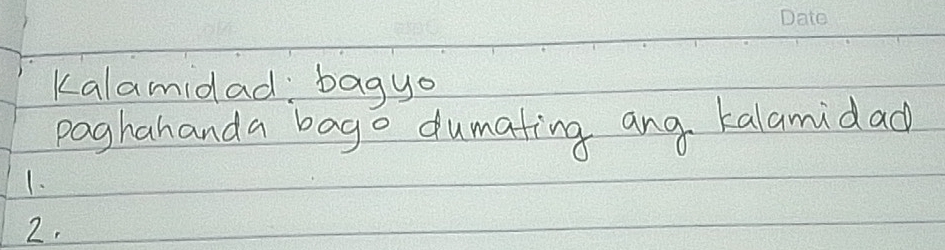 Date
Kalamidad: bagyo
paghahanda bago dumating ang kalamidad
1.
2.